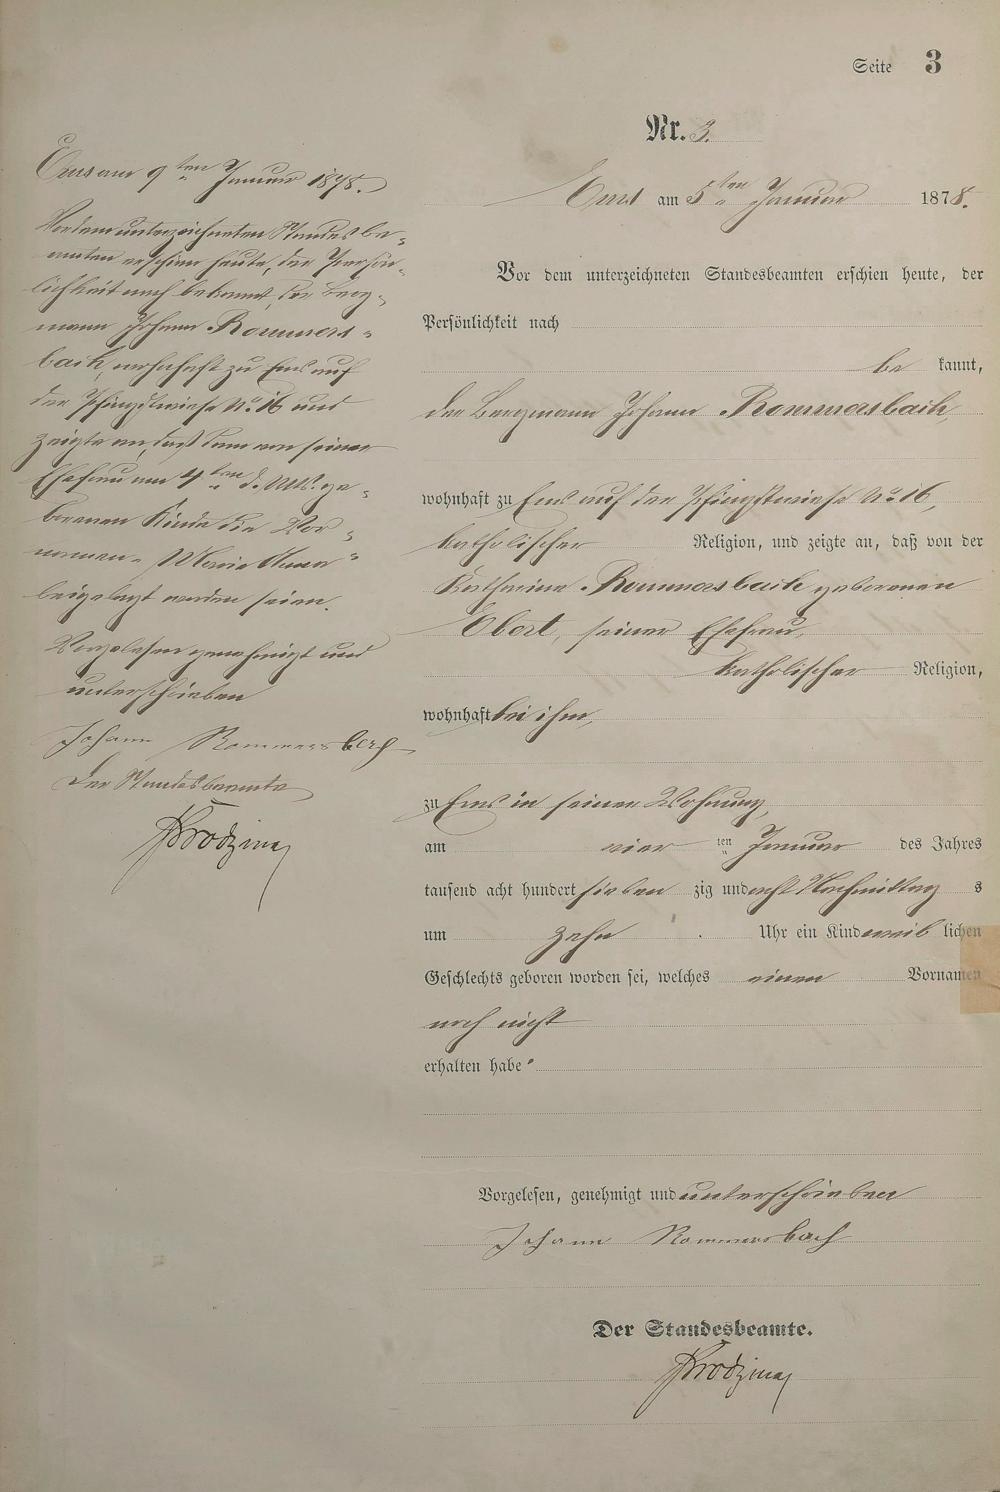 Seite 3
Nr. 3.
Ems am 5ten Januar 1878.
Vor dem unterzeichneten Standesbeamten erschien heute, der
Persönlichkeit nach
be kannt,
der Bergmann Johann Rommersbach,
wohnhaft zu Ems auf der Pfingstwiese No. 16,
katholischer Religion, und zeigte an, daß von der
Katharina Rommersbach geborenen
Ebert, seiner Ehefrau,
katholischer Religion,
wohnhaft bei ihm,
zu Ems in seiner Wohnung,
am vier ten Januar des Jahres
tausend acht hundert sieben zig und acht Nachmittag s
um zehn Uhr ein Kind weib lichen
Geschlechts geboren worden sei, welches einen Vornamen
noch nicht
erhalten habe.
Vorgelesen, genehmigt und unterschrieben
Johann Rommersbach
Der Standesbeamte.
Ems am 9ten Januar 1878.
Vor dem unterzeichneten Standesbe-
amten erschien heute, der Persön-
lichkeit nach bekannt, der Berg-
mann Johann Rommers-
bach, wohnhaft zu Ems auf
der Pfingstwiese No. 16 und
zeigte an, daß dem von seiner
Ehefrau am 4ten d. Mts. ge-
borenen Kinde die Vor-
namen "Maria Anna"
beigelegt worden seien.
Vorgelesen genehmigt und
unterschrieben
Johann Rommersbach
Der Standesbeamte